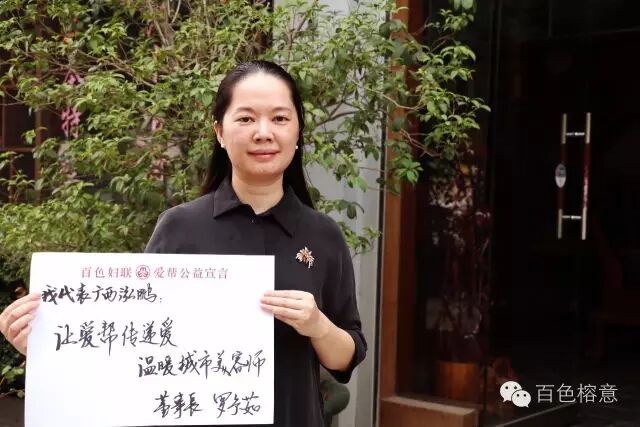 百色妇联 爱帮公益宣言
我代表广西泓鹏:
让爱帮传递爱
温暖城市美容师
董事長 罗予茹
百色榕意